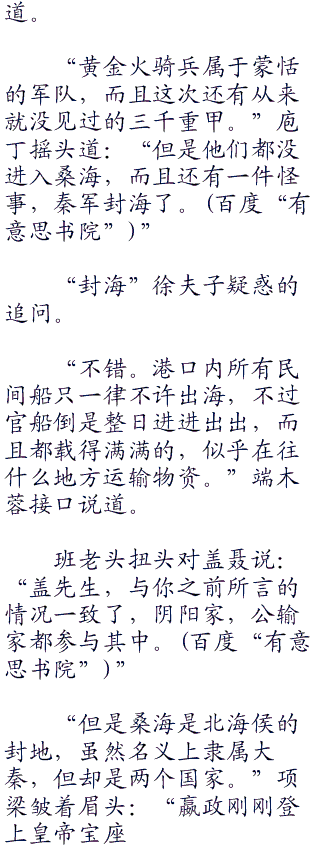 道。
“黄金火骑兵属于蒙恬
的军队，而且这次还有从来
就没见过的三千重甲。”庖
丁摇头道：“但是他们都没
进入桑海，而且还有一件怪
事，秦军封海了。(百度“有
意思书院”)”
“封海”徐夫子疑惑的
追问。
“不错。港口内所有民
间船只一律不许出海，不过
官船倒是整日进进出出，而
且都载得满满的，似乎在往
什么地方运输物资。”端木
蓉接口说道。
班老头扭头对盖聂说：
“盖先生，与你之前所言的
情况一致了，阴阳家，公输
家都参与其中。(百度“有意
思书院”)”
“但是桑海是北海侯的
封地，虽然名义上隶属大
秦，但却是两个国家。”项
梁皱着眉头：“嬴政刚刚登
上皇帝宝座